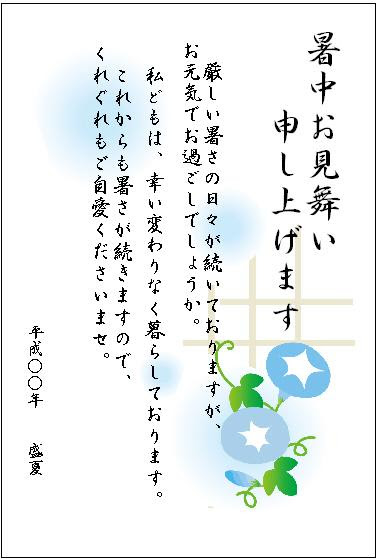 暑中お見舞い
申し上げます
厳しい暑さの日々が続いておりますが、
お元気でお過ごしでしょうか。
私どもは、幸い変わりなく暮らしております。
これからも暑さが続きますので、
くれぐれもご自愛くださいませ。
平成〇〇年　盛夏